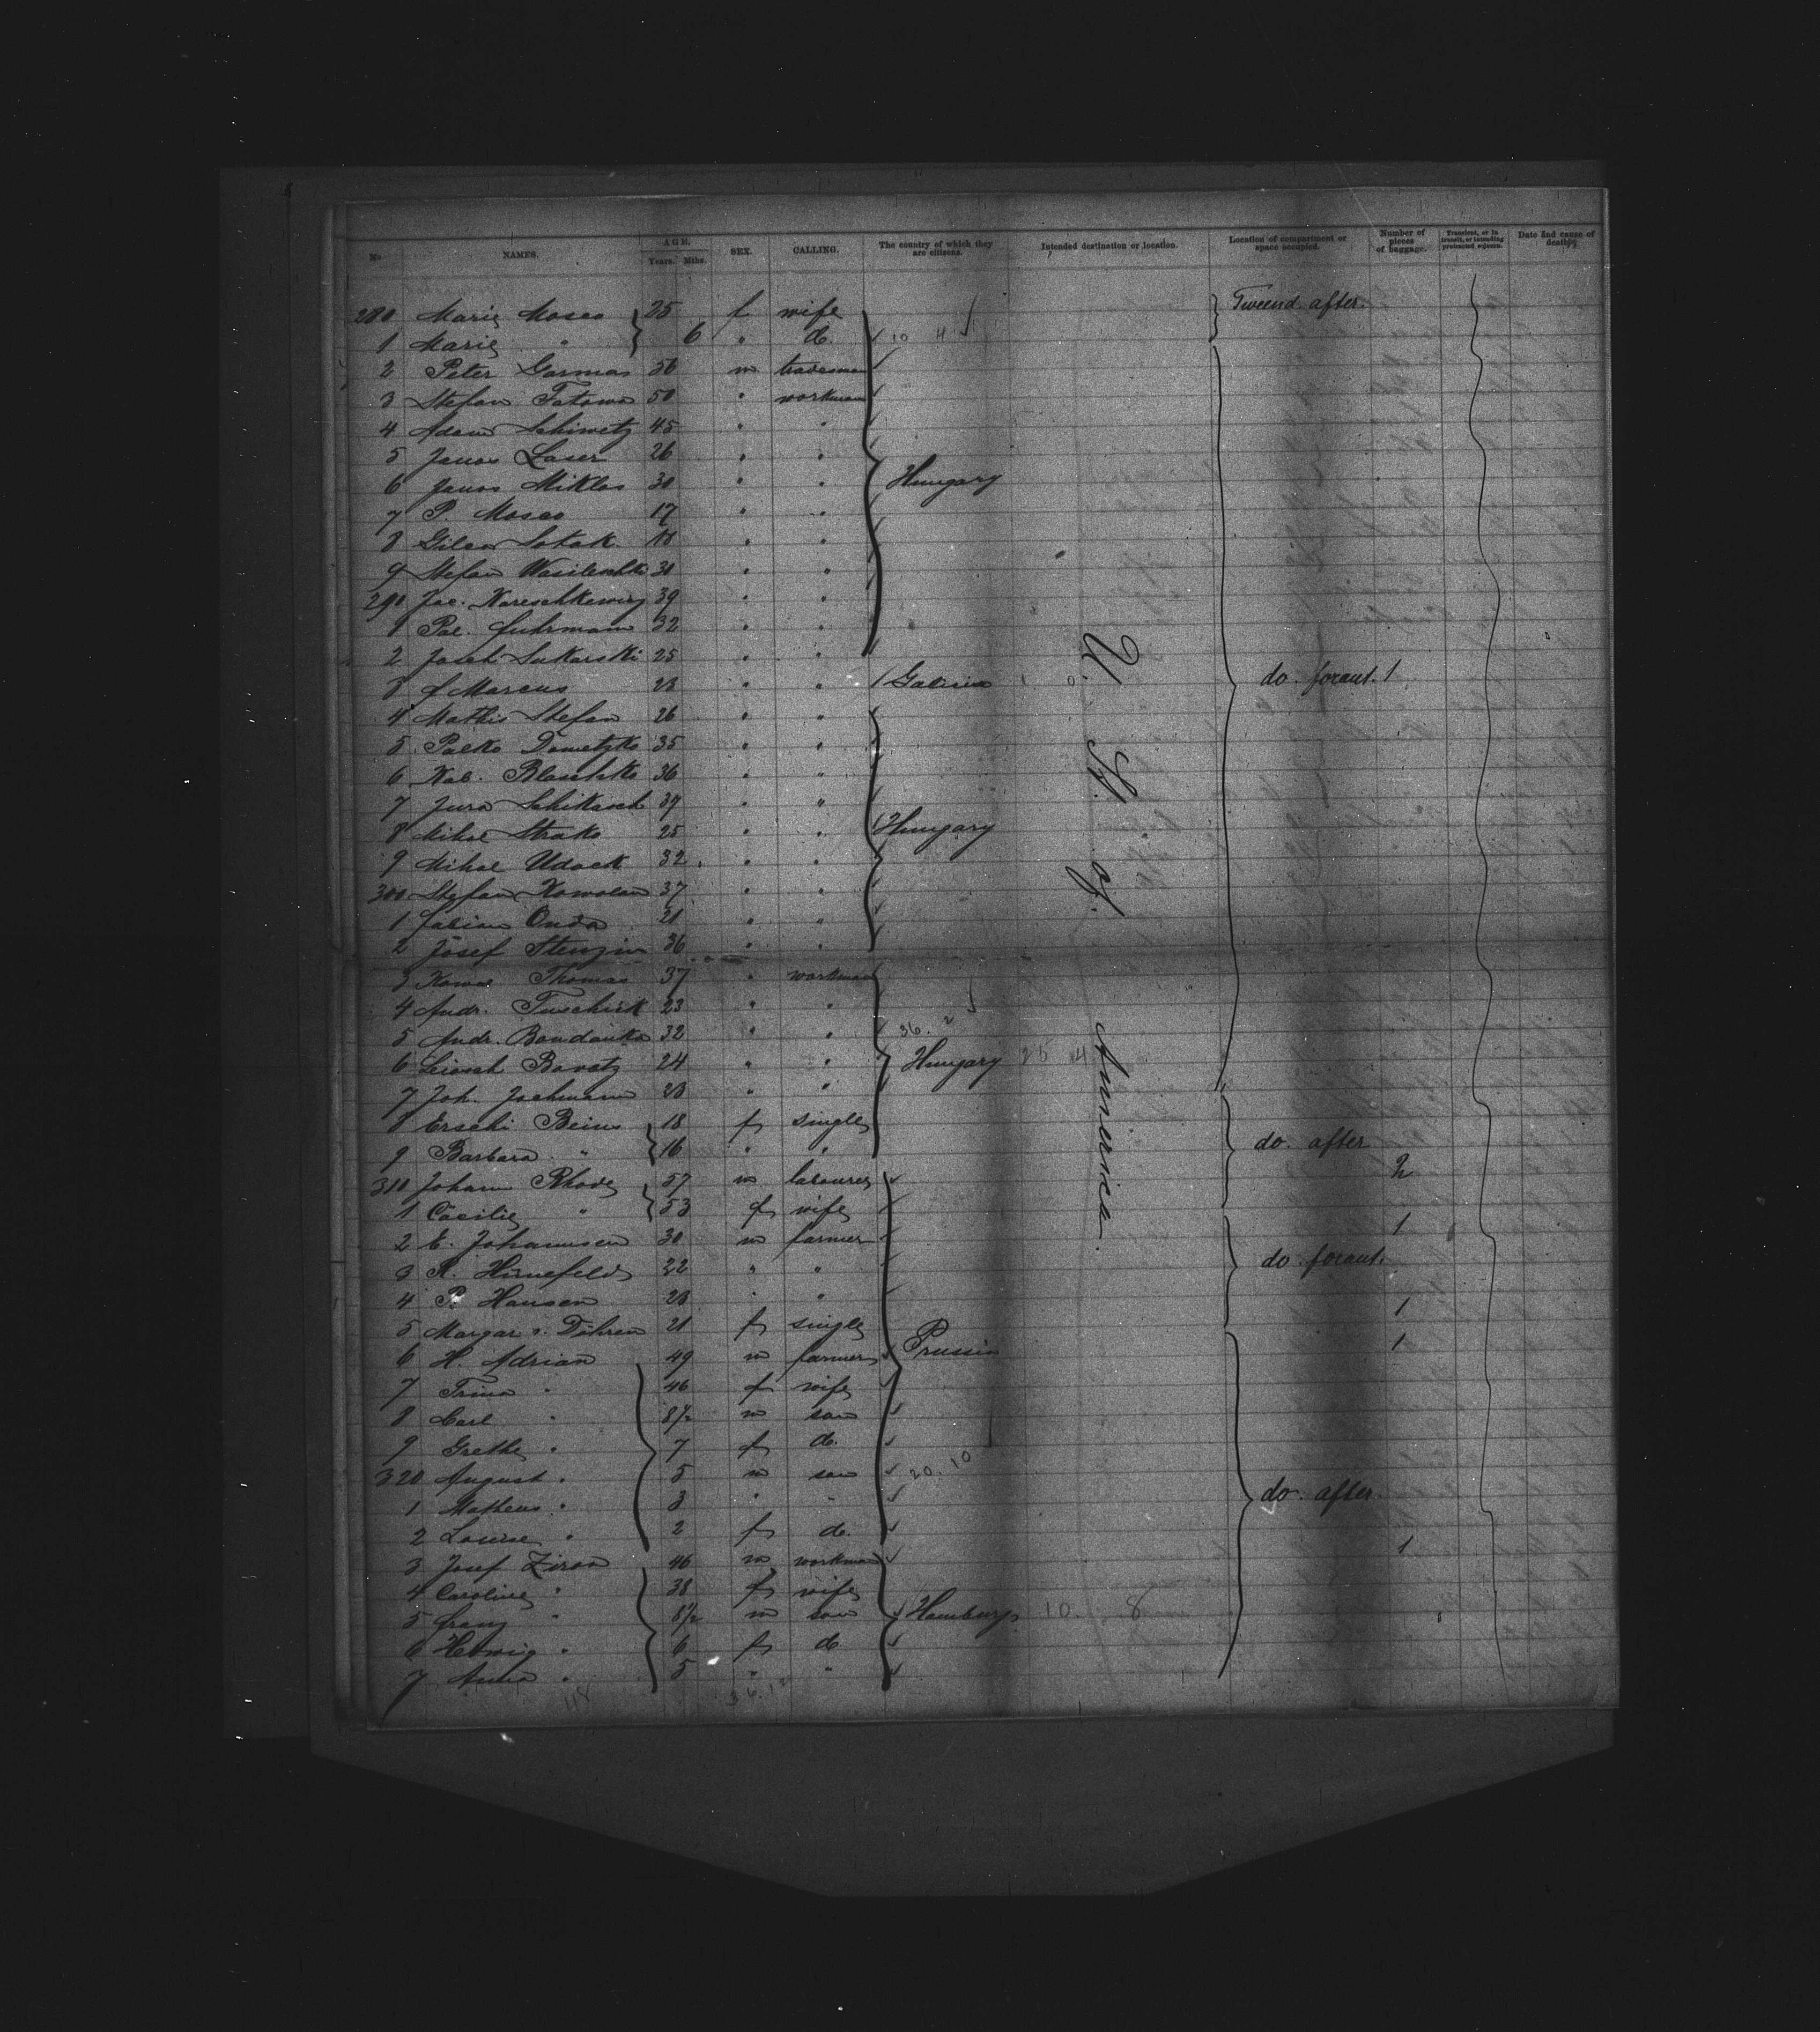 No. NAMES. AGE. Years. Mths. SEX. CALLING. The country of which they are citizens. Intended destination or location. Location of compartment or space occupied. Number of pieces of baggage. Transient, or in transit, or intending protracted sojourn. Date and cause of death
280 Marie Mosco 25 f wife Tweend. after.
1 Marie " 6 " d. 10 4
2 Peter Gormas 56 m tradesman
3 Stefan Tatowa 50 " workman
4 Adam Schiwetz 45 " "
5 Janos Laser 26 " "
6 Janos Miklos 30 " " Hungary
7 P. Mosco 17 " "
8 Sotak " "
9 Stefan 30 " "
290 Jac. 39 " "
1 Pal. Fuhrmann 32 " "
2 Josef Sukarski 25 " "
3 J Marcus 23 " " Galicia U. St. of America. do. foraut. 1
4 Mathis Stefan 26 " "
5 Palko Dometzko 35 " "
6 Blaschko 36 " "
7 Jura Schikasch 39 " "
8 Mihal Strako 25 " " Hungary
9 Mihal Udack 32 " "
300 Stefan Kowolan 37 " "
1 Fabian Onda 21 " "
2 Josef 36 " "
3 Kowal Thomas 37 " workman
4 Andr. Tuschirk 23 " "
5 Andr. Bandanko 32 " " 36. 2
6 24 " " Hungary 25 14
7 Joh. Jachmann 23 " "
8 Erschi Bein 18 f single
9 Barbara " 16 " " do. after
310 Johann Rhode 57 m labourer 2
1 Cäcilie " 53 f wife
2 E. Johannsen 30 m farmer 1
3 R. Hünefeld 22 " " do. foraut.
4 P. Hansen 23 " " 1
5 Margar v. Döhren 21 f single Prussia 1
6 H. Adrian 49 m farmer
7 Trina " 46 f wife
8 Carl " 8½ m son
9 Grethe " 7 f d.
320 August " 5 m son 20. 10
1 Matheus " 3 " " do. after.
2 Louise " 2 f d.
3 Josef Ziron 46 m workman 1
4 Caroline " 38 f wife
5 Franz " 8½ m son Hamburg 10. 8
6 Hedwig " 6 f d.
7 Anna " 5 " "